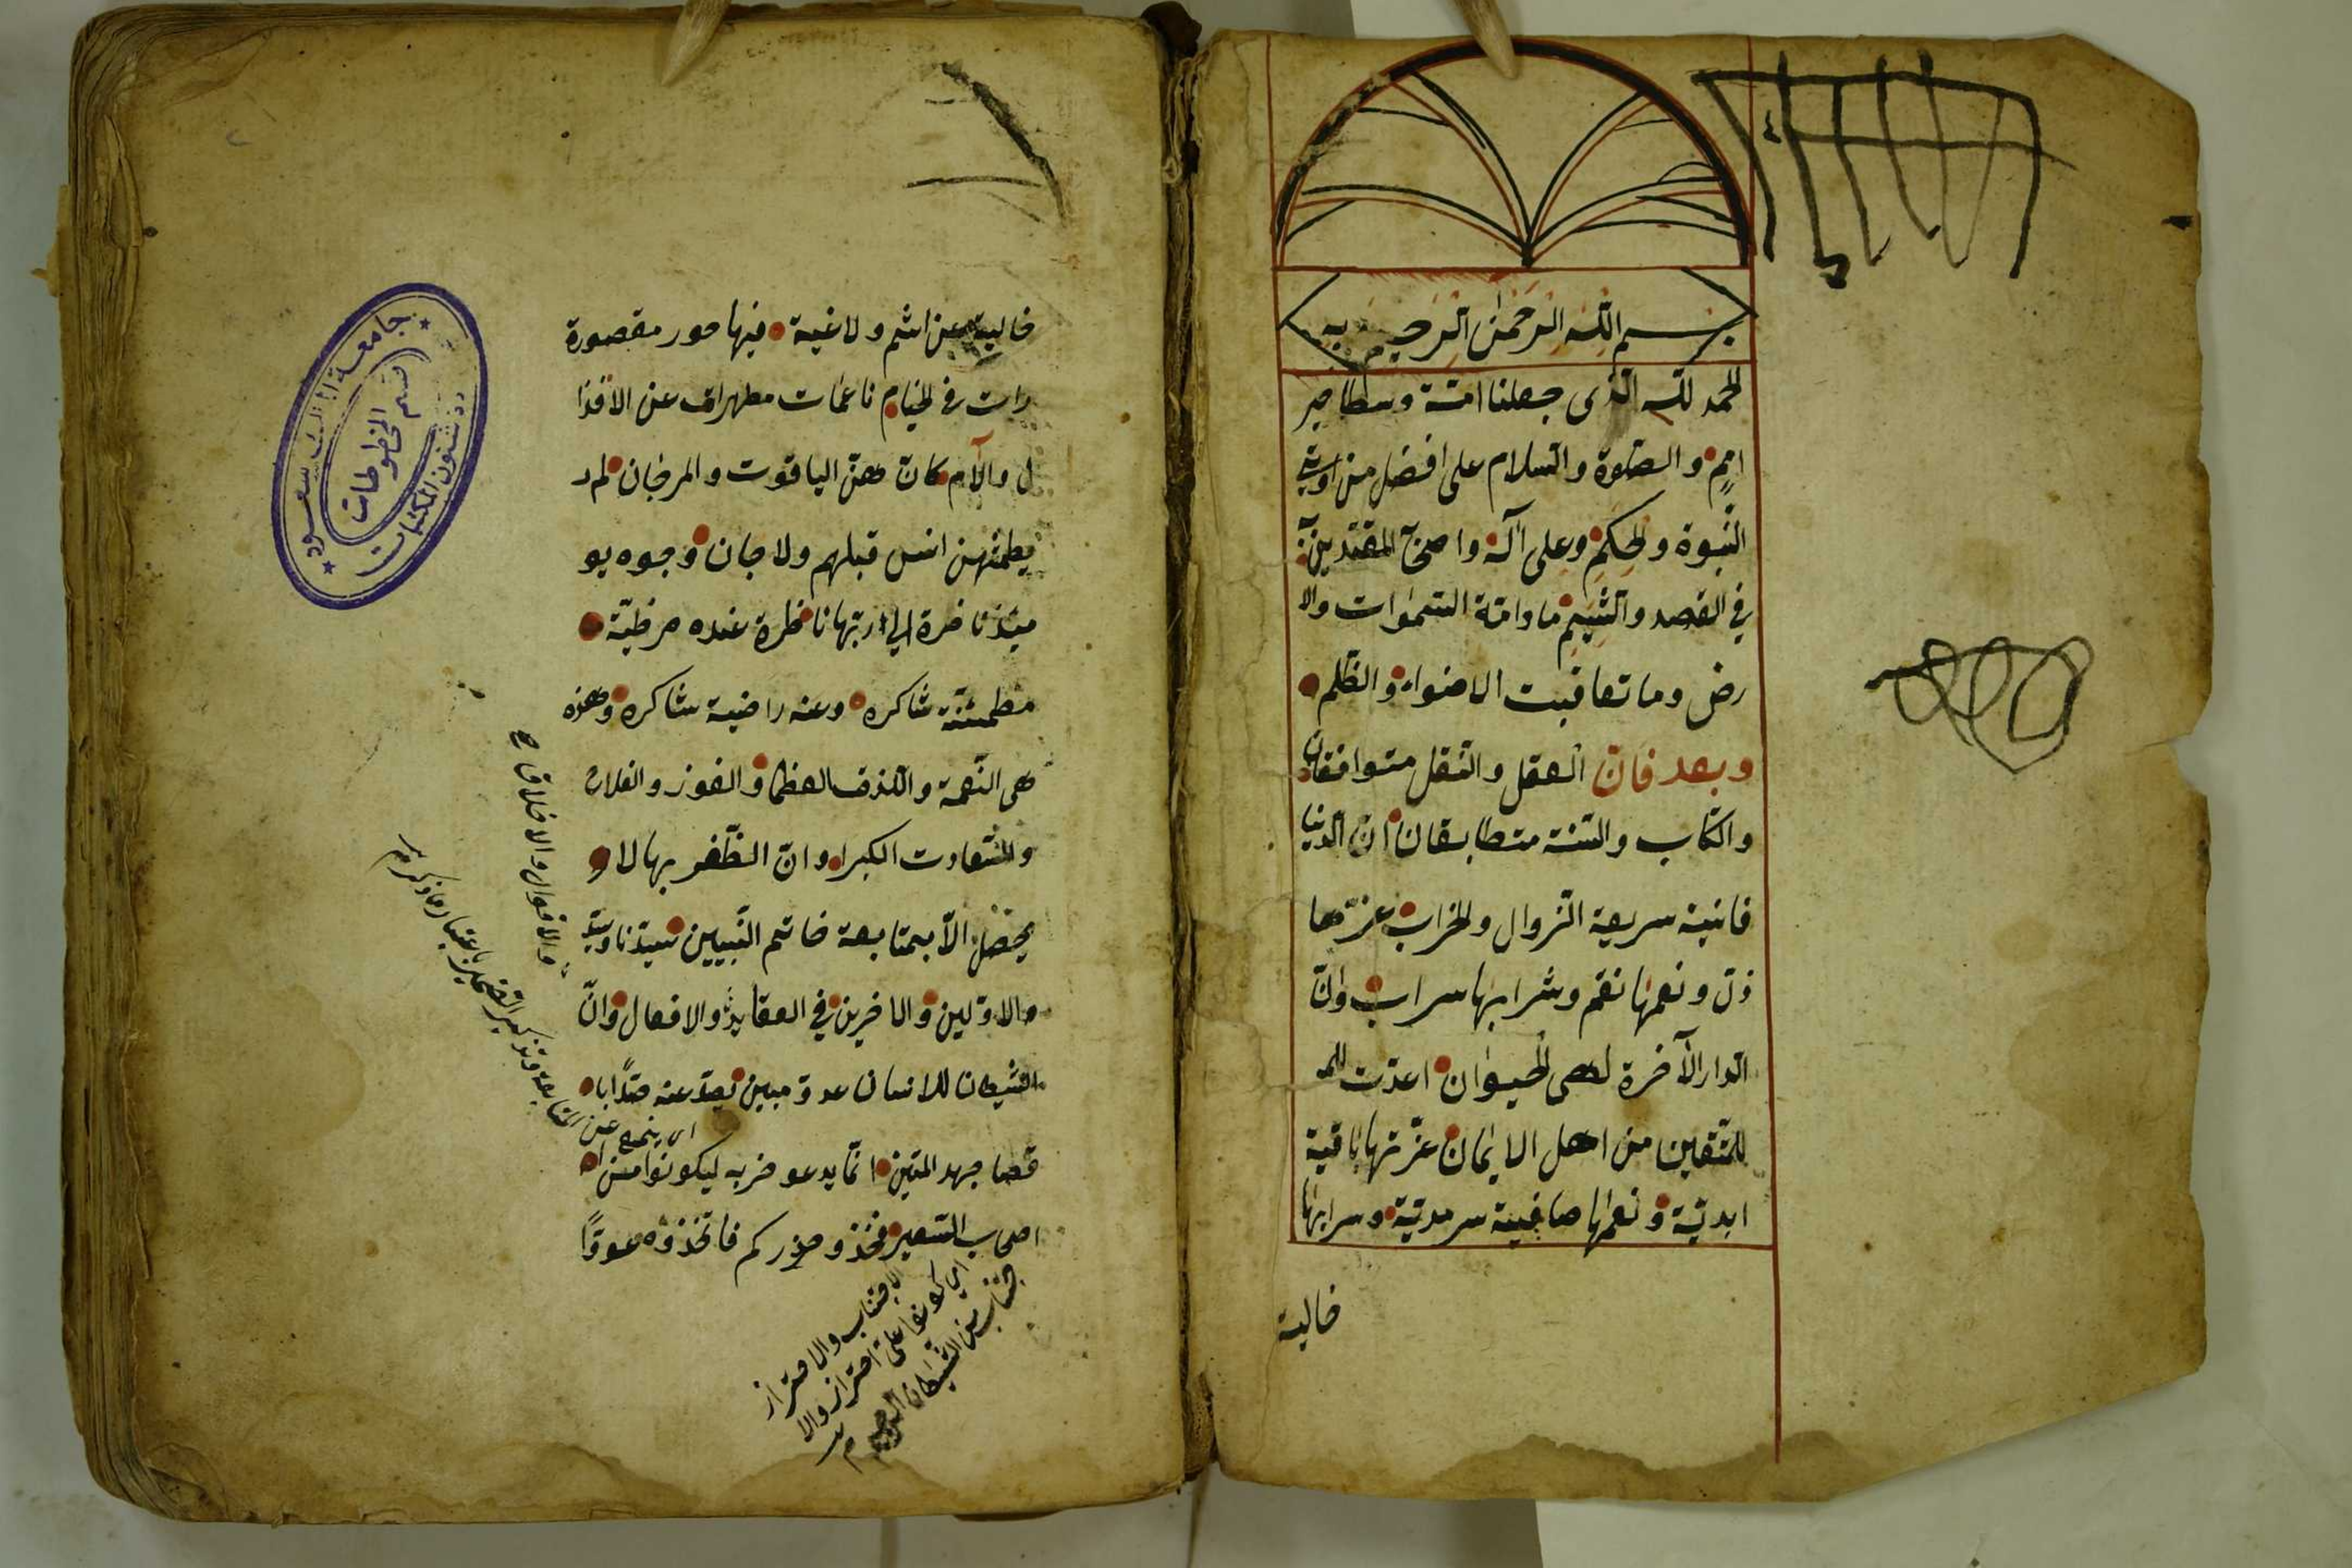 بسم الله الرحمن الرحيم وبه
الحمد لله الذى جعلنا امة وسطا خير
امم والصلوة والسلام على افضل من اوتي
النبوة والحكم وعلى آله واصحابه المقتدين به
في القصد والشيم ما دامة السموات والا
رض وما تعاقبت الاضواء والظلم
وبعد فان العقل والنقل متوافقان
والكتاب والسنة متطابقان ان الدنيا
فانية سريعة الزوال والخراب عزها
ذل ونعمها نقم وشرابها سراب وان
الدار الآخرة لهى الحيوان اعدت للمـ
للمتقين من اهل الايمان عزتها باقية
ابدية ونعمها صافية سرمدية وسرابها
خالية
خالية عن اثم ولاغية فيها حور مقصورة
رات في الخيام ناعمات مطهرات عن الاقذا
ل والآم كان هن الياقوت والمرجان لم
يطمثهن انس قبلهم ولا جان وجوه يو
ميئذ ناضرة الي ربها ناظرة عنده مرظية
مطمئنة شاكره وعنه راضية شاكره وهذه
هى النعمة واللذت العظما والفوز والفلاح
والسعادت الكبرا وان الظفر بها لا
يحصل الا بمتابعة خاتم النبيين سيدنا وسيد
الاولين والاخرين في العقايد والافعال وان
والاقوال والاخلاق صح
الشيطان للانسان عدو مبين يصد عنه صدا با
اى يمنع عن المتابعة وتذكير الضمير باعتبار ما ذكر
قصا جهد المتين انما يدعو حزبه ليكونوا من ا
اصحاب السعير فخذو حذركم فاتخذوه عدوا
الاجتناب والاحتراز
اي كونوا على احتراز والا
جتناب من الشيطان الرجيم
جامعة الملك سعود
قسم المخطوطات
شئون المكتبات